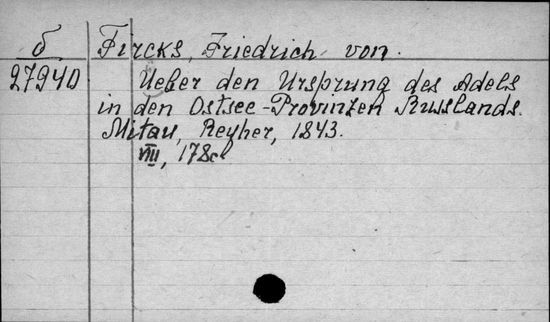 б Fircks, Friedrich von.
27940 Ueber den Ursprung des Adels
in den Ostsee-Provinzen Russlands.
Mitau, Reyher, 1843.
VIII, 178c